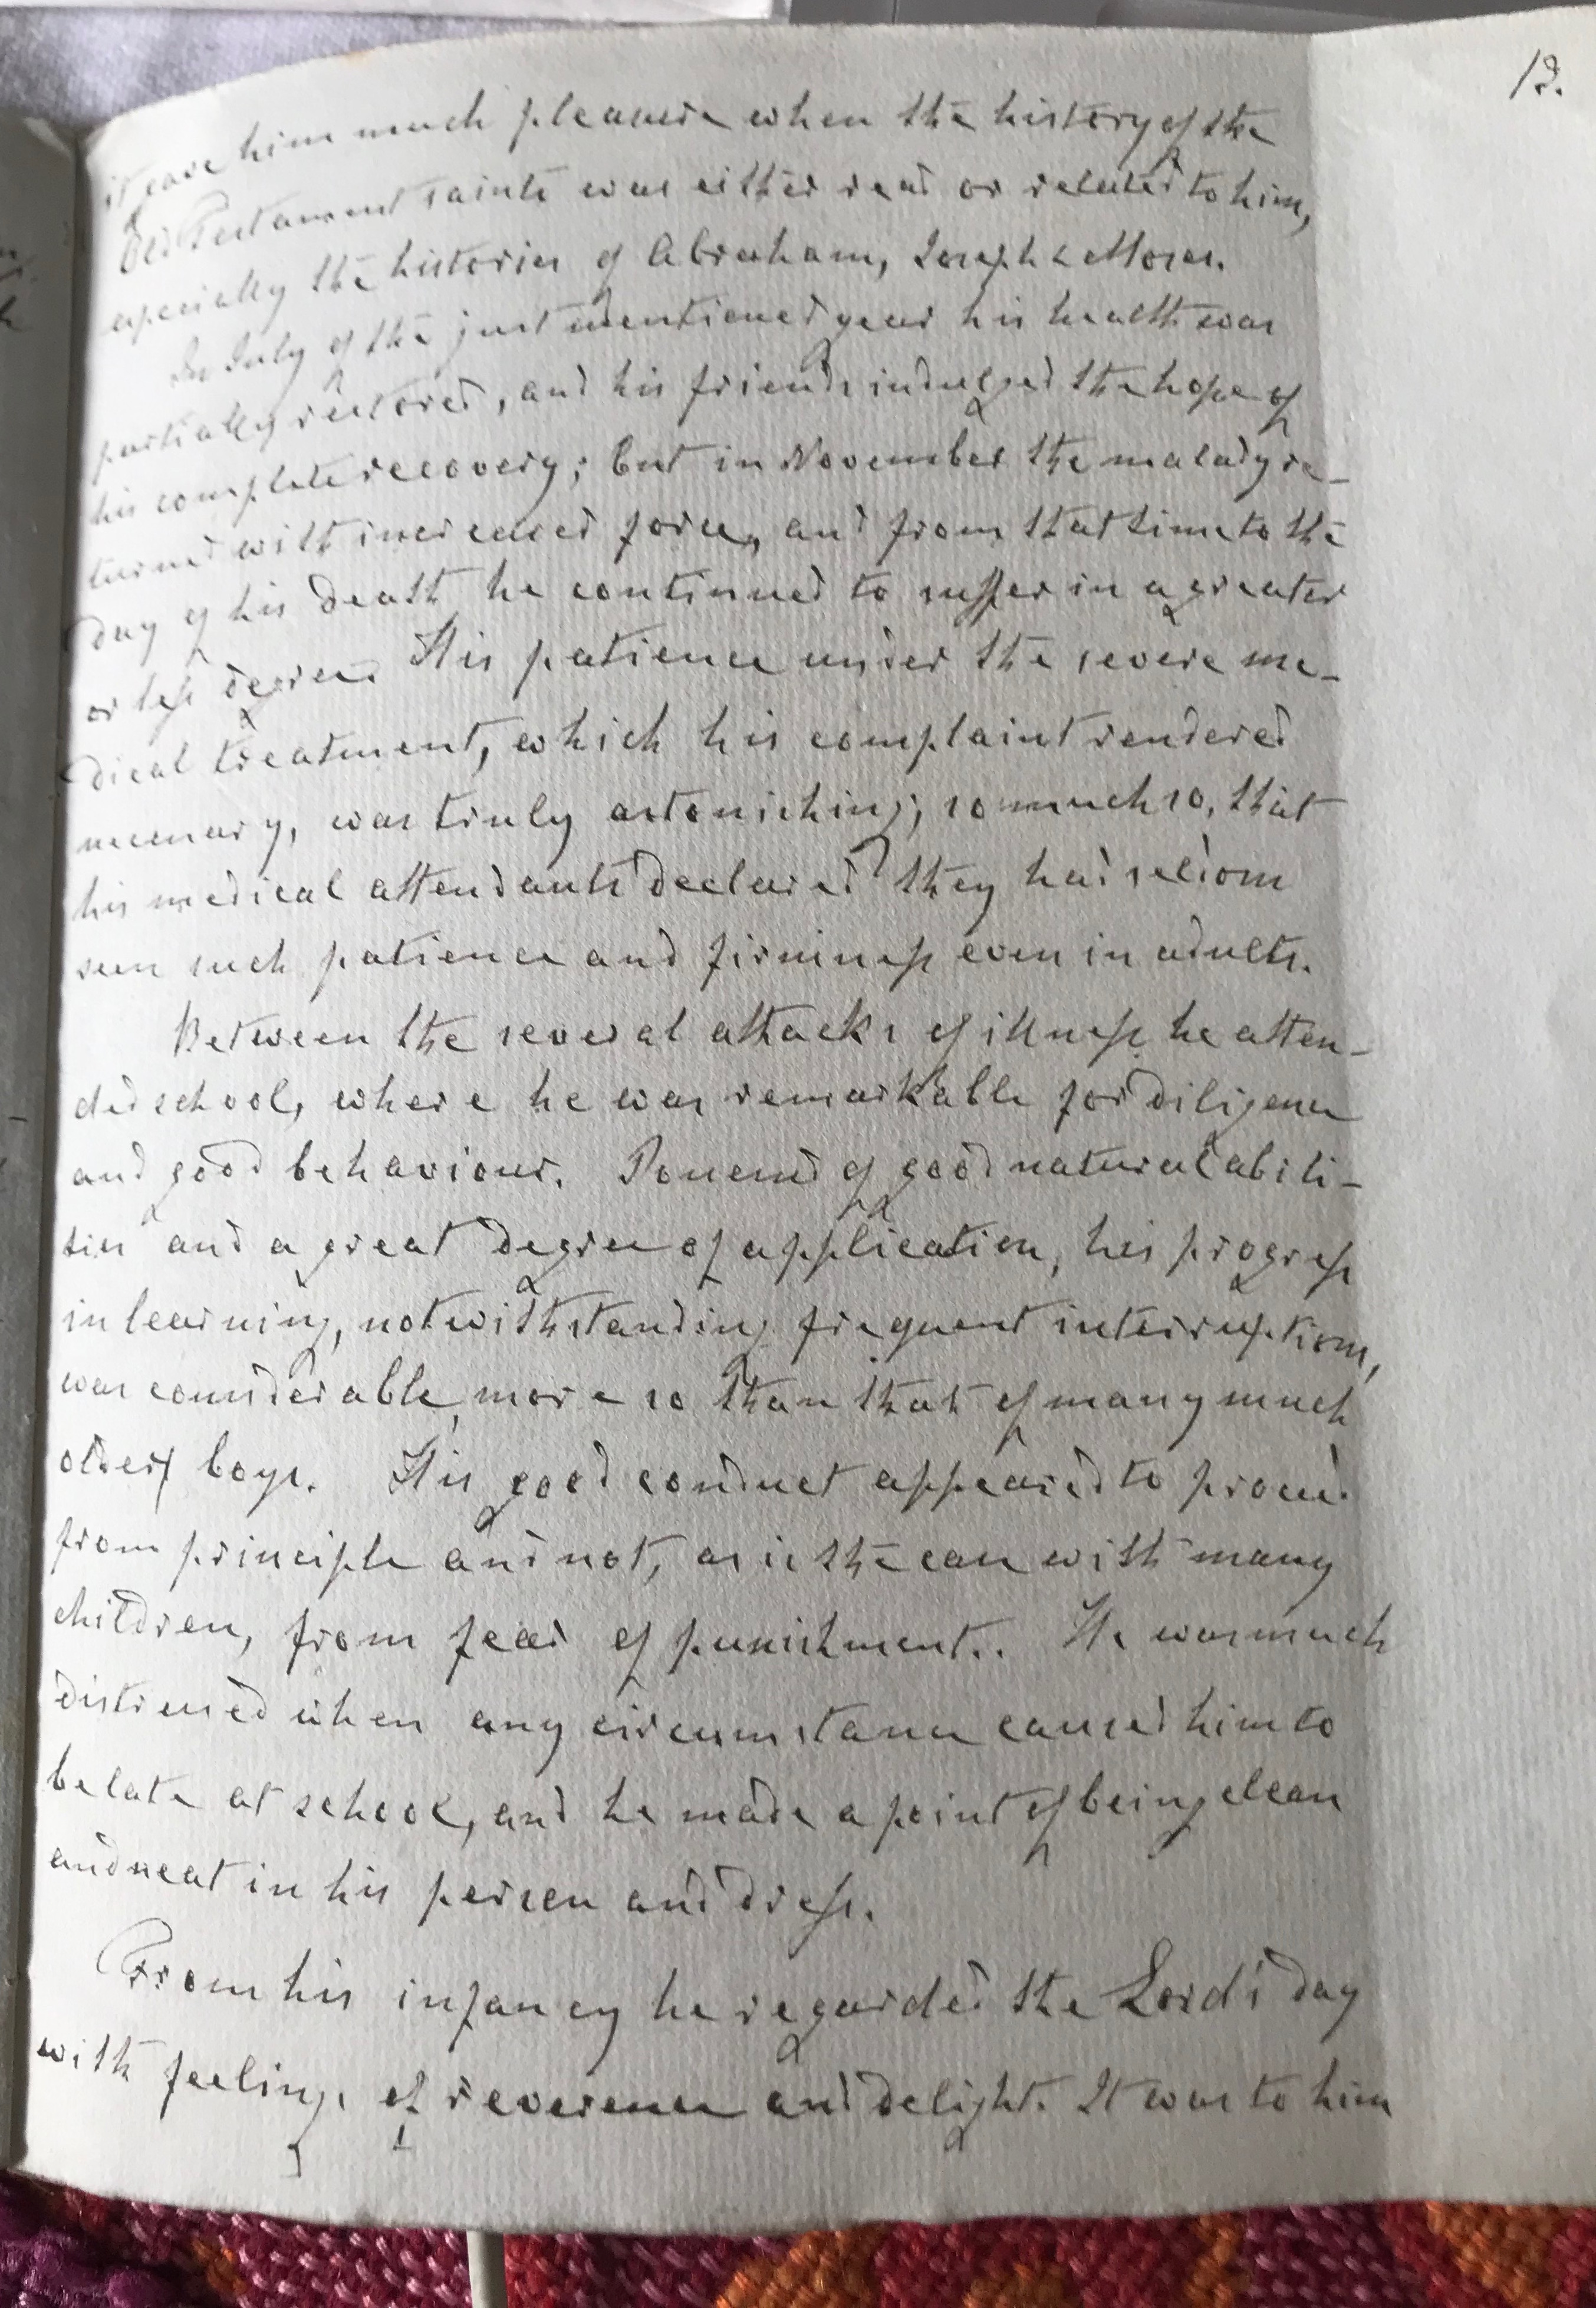 13.
it gave him much pleasure when the history of the
Old Testament saints was either read or related to him,
especially the histories of Abraham, Joseph & Moses.
In July of the just mentioned year his health was
partially restored, and his friends indulged the hope of
his complete recovery; but in November the malady re-
turned with increased force, and from that time to the
day of his death he continued to suffer in a greater
or less degree. His patience under the severe me-
dical treatment, which his complaint rendered
necessary, was truly astonishing; so much so, that
his medical attendants declared they had seldom
seen such patience and firmness even in adults.
Between the several attacks of illness he atten-
ded school, where he was remarkable for diligence
and good behaviour. Possessed of good natural abili-
ties and a great degree of application, his progress
in learning, notwithstanding frequent interruptions,
was considerable, more so than that of many much
older boys. His good conduct appeared to proceed
from principle and not, as is the case with many
children, from fear of punishment.. He was much
distressed when any circumstance caused him to
be late at school, and he made a point of being clean
and neat in his person and dress.
From his infancy he regarded the Lord's day
with feelings of reverence and delight. It was to him